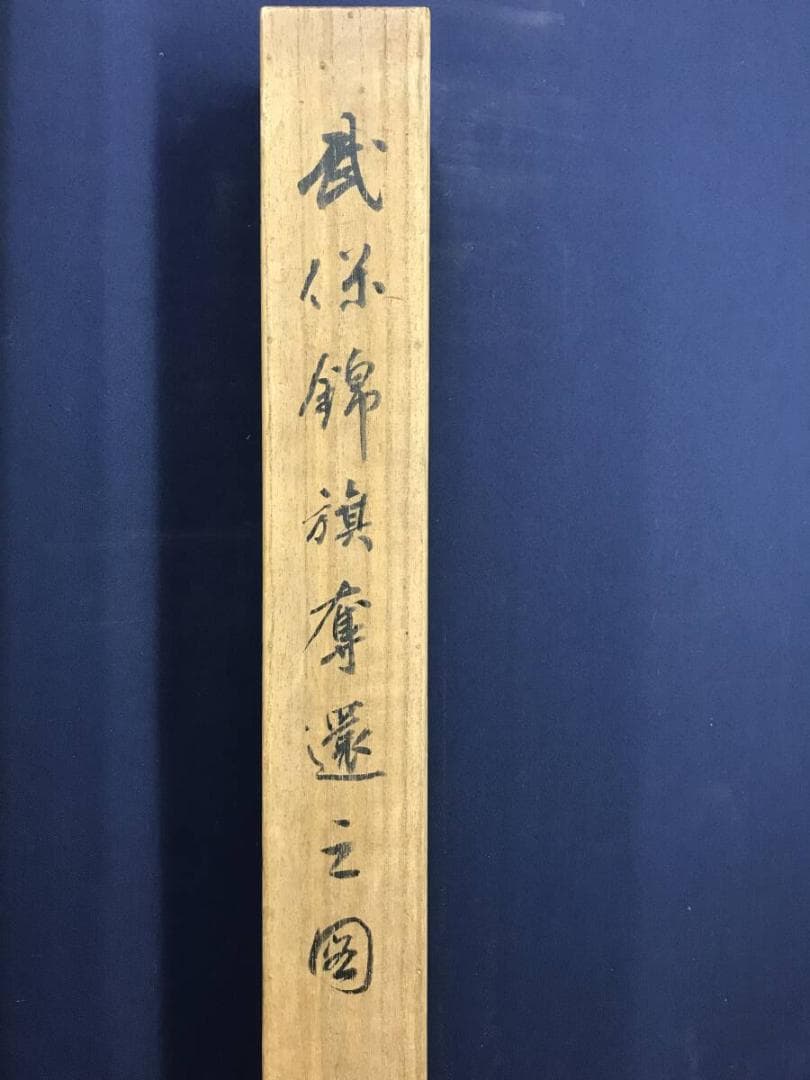 武保錦旗奪還之図